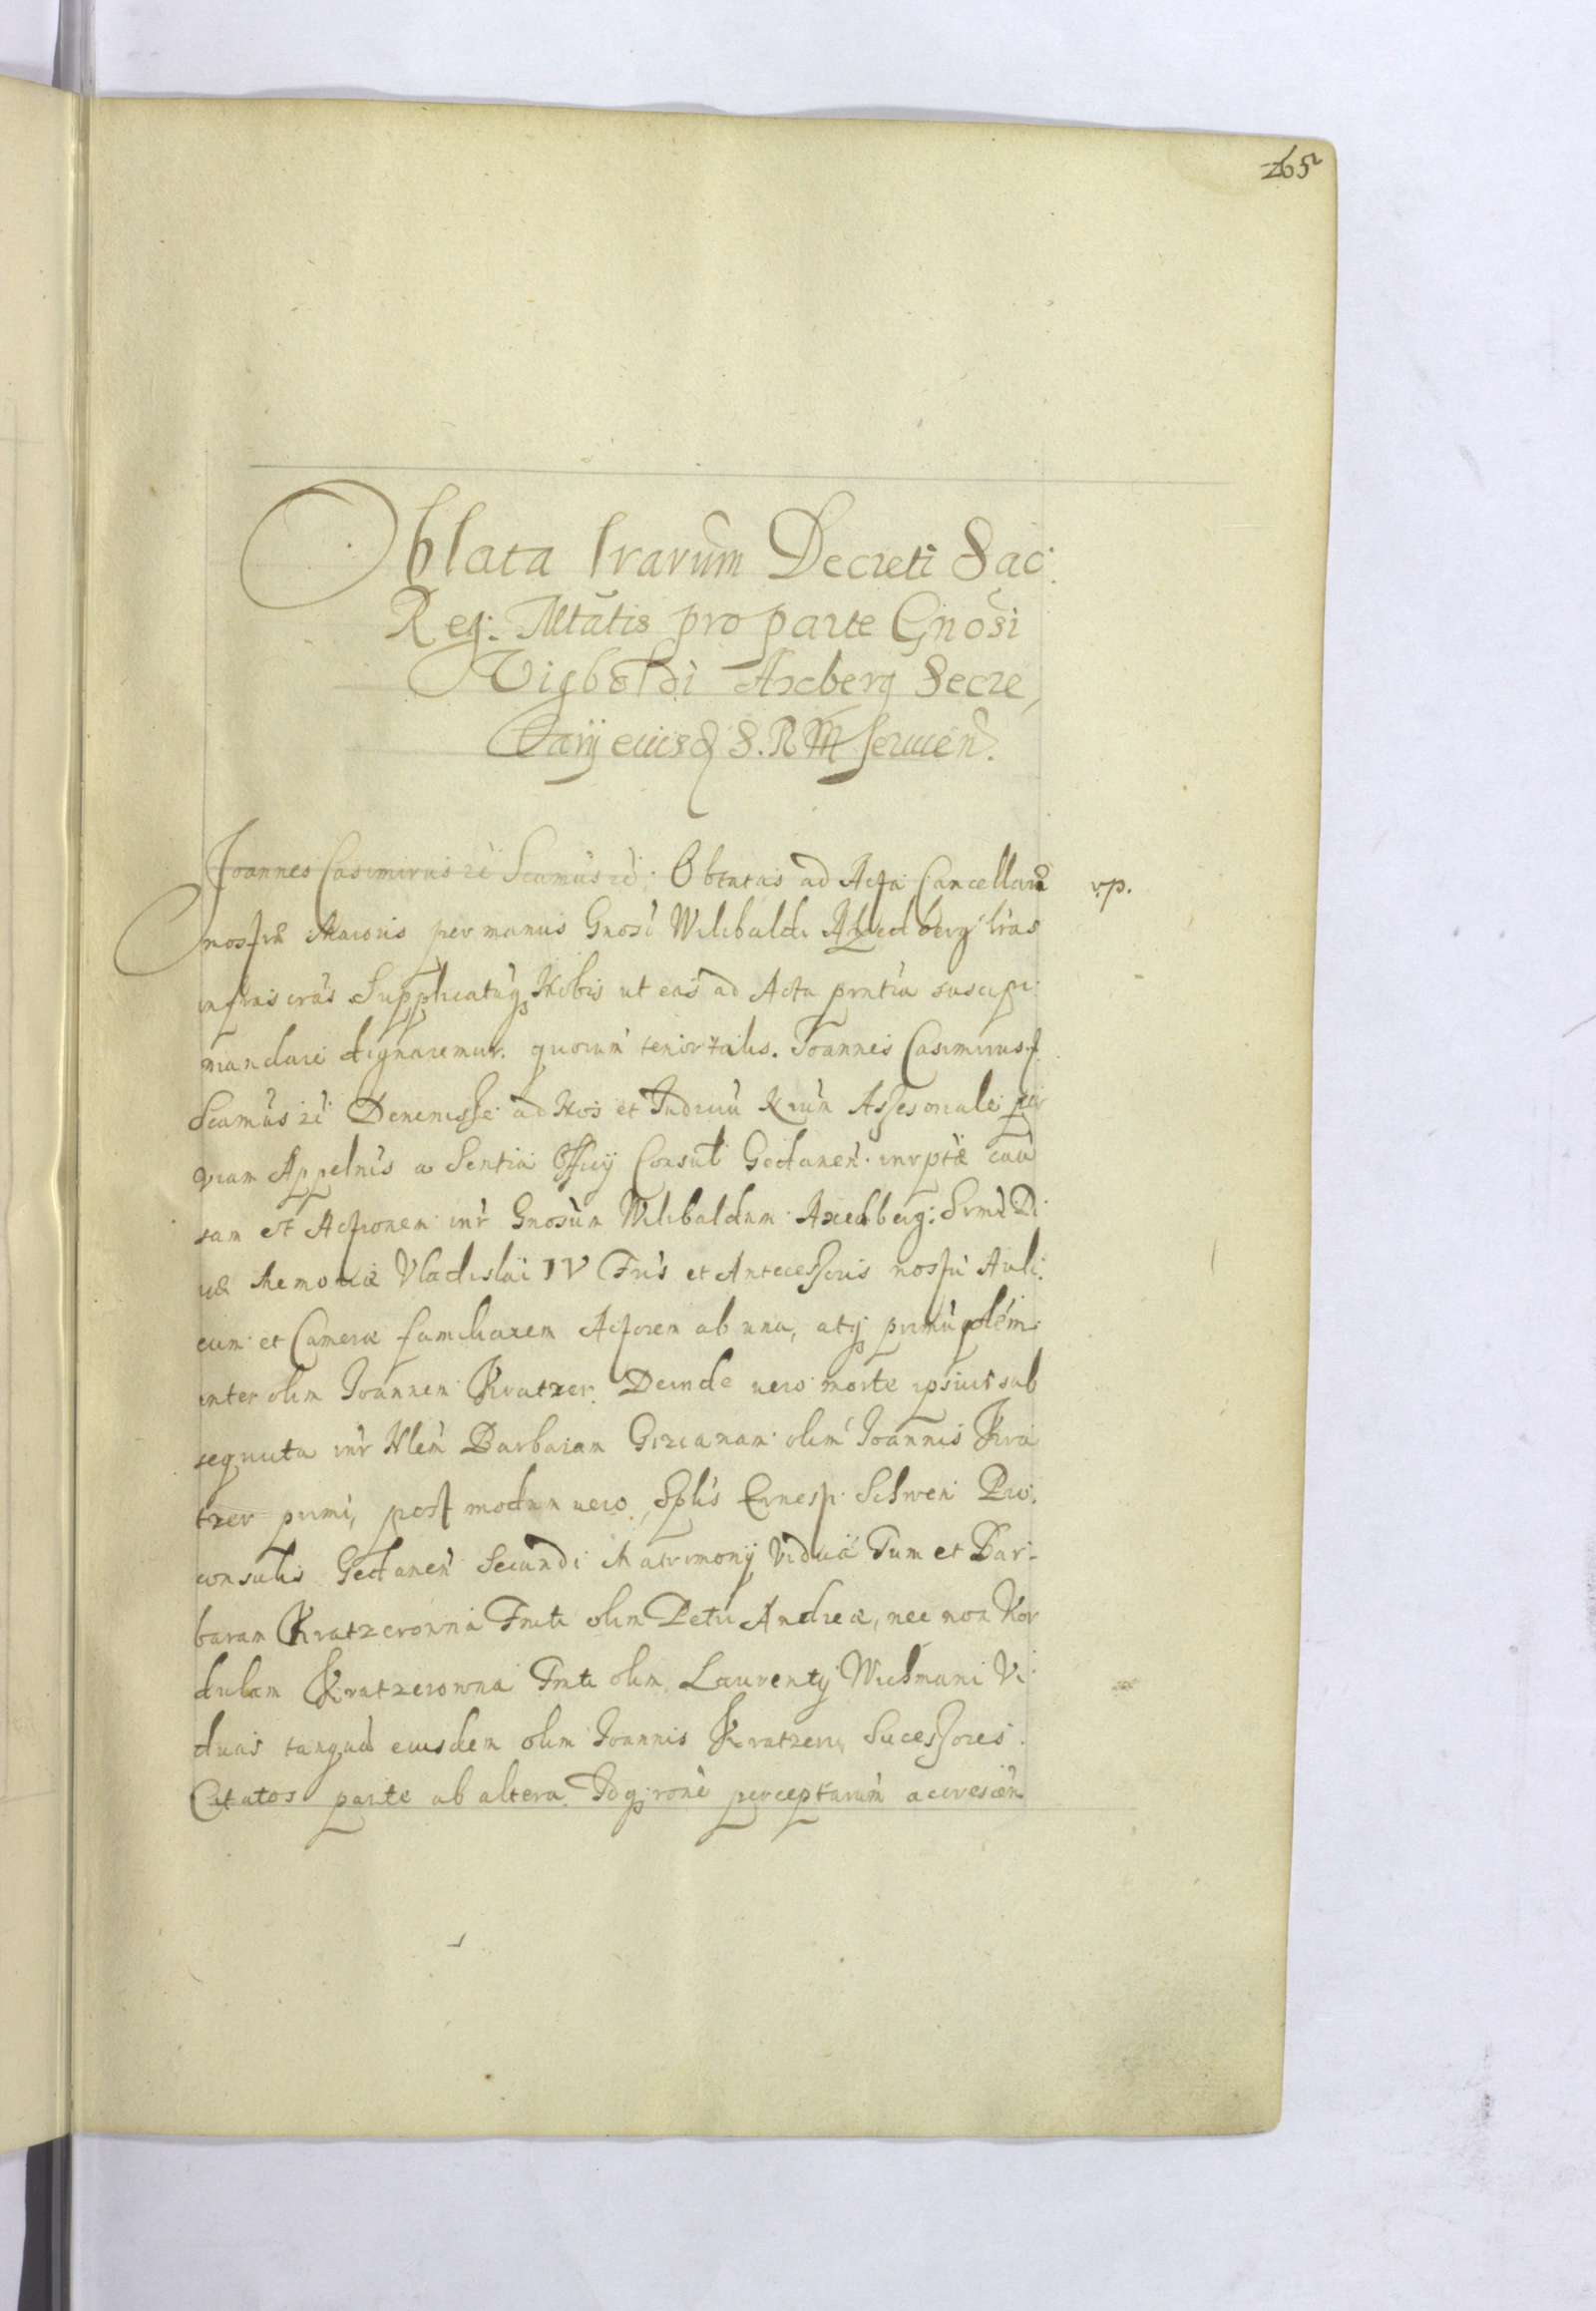 265
Oblata lrarum Decreti Sac:
Reg: Mtatis pro parte Gnosi
Vigboldi Axcberg Secre,
tarij eiusd S. R M seruien.
Joannes Casimirus zc Scamus zc: Obtatas ad Acta Cancellariæ v.p.
nostræ Maioris per manus Gnosi Wilibaldi Axedberg lras
infrascras Supplicatuq Nobis ut eas ad Acta prntia suscipi
mandare dignaremur. quorum tenor talis. Joannes Casimirus
Scamus zc Deuenisse ad Nos et Judiciu Nrum Assessoriale per
viam Appelnis a Sentia Officij Consul Gedanen. inrptæ cau
sam et Actionem inr Gnosum Wilibaldum Axedberg: Srmi Di
uæ Memoriæ Vladislai IV Fris et Antecessoris nostri Auli
cum et Cameræ familiarem Actorem ab una, atq primu
inter olim Joannem Kratzer. Deinde uero morte ipsius sub
sequuta inr Nlem Barbaram Gizianam olim Joannis Kra
tzer primi, post modum uero, Splis Ernesti Schwen Pro.
consulis Gedanen Secundi Matrimonij Viduā Tum et Bar-
baram Kratzerowna Fmti olim Petri Andreæ, nec non Kor
dulam Kratzerowna Fmti olim Laurentij Wichmani Vi
duas tanquā eiusdem olim Joannis Kratzern Sucessores
Citatos parte ab altera. Idq rone perceptarum acresien